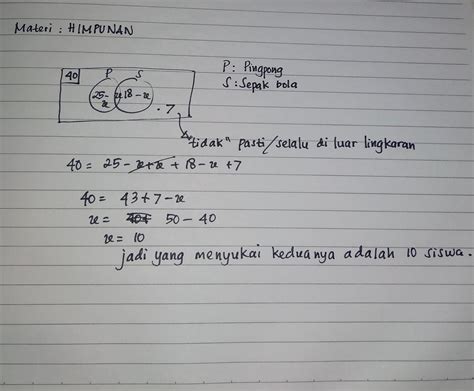 Materi : HIMPUNAN
40 P S
P : Pingpong
S : Sepak bola
25-x x 18-x . 7
"tidak" pasti/selalu di luar lingkaran
40 = 25 - x + x + 18 - x + 7
40 = 43 + 7 - x
x = 50 - 40
x = 10
jadi yang menyukai keduanya adalah 10 siswa.